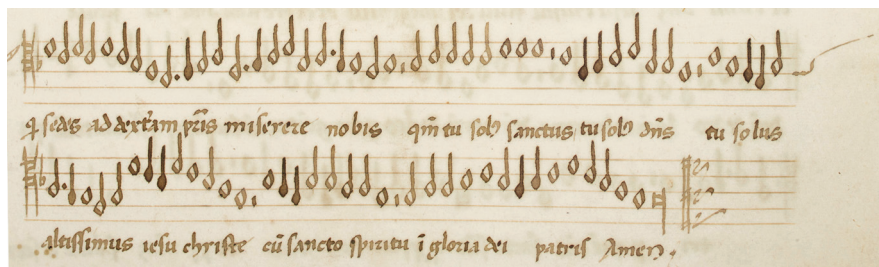 qi sedes ad dexteram pris miserere nobis qm tu solus sanctus tu solus dns tu solus
altissimus iesu christe cu sancto spiritu i gloria dei patris Amen.